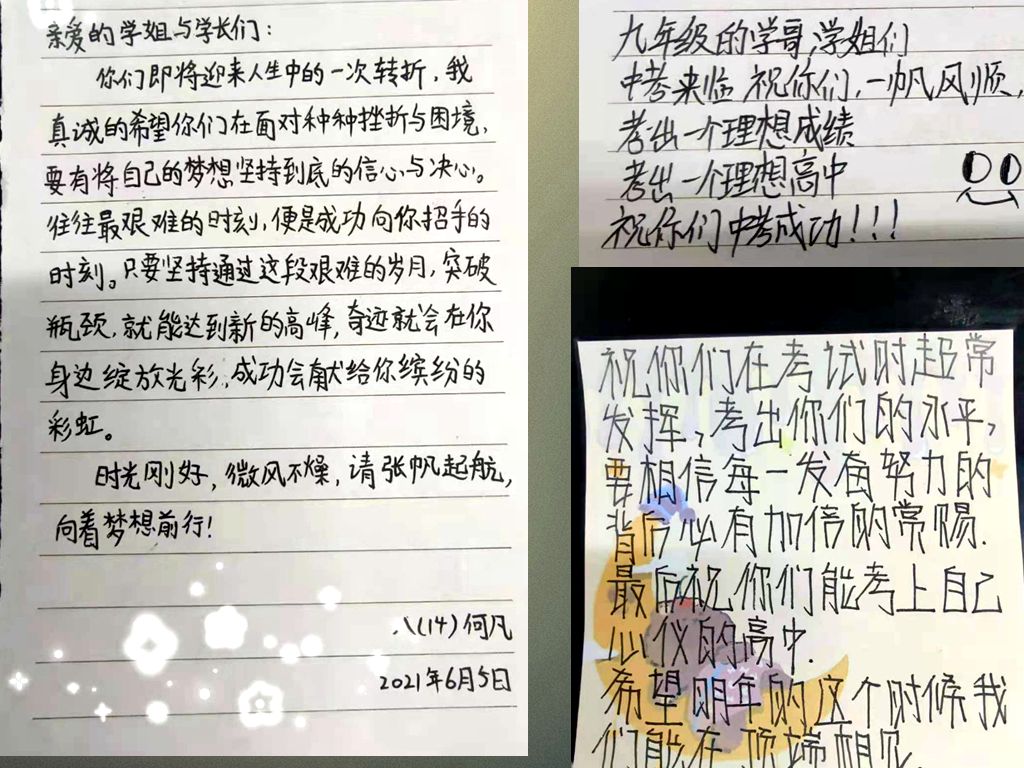 亲爱的学姐与学长们：
你们即将迎来人生中的一次转折，我
真诚的希望你们在面对种种挫折与困境，
要有将自己的梦想坚持到底的信心与决心。
往往最艰难的时刻，便是成功向你招手的
时刻。只要坚持通过这段艰难的岁月，突破
瓶颈，就能达到新的高峰，奇迹就会在你
身边绽放光彩，成功会献给你缤纷的
彩虹。
时光刚好，微风不燥，请张帆起航，
向着梦想前行！
八(14)何凡
2021年6月5日
九年级的学哥，学姐们
中考来临，祝你们，一帆风顺，
考出一个理想成绩
考出一个理想高中
祝你们中考成功！！！
祝你们在考试时超常
发挥，考出你们的水平，
要相信每一发奋努力的
背后必有加倍的赏赐.
最后祝你们能考上自己
心仪的高中.
希望明年的这个时候我
们能在顶端相见